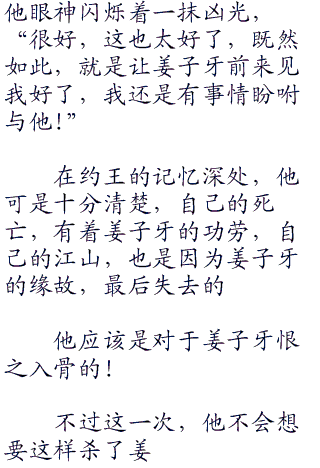 他眼神闪烁着一抹凶光，
“很好，这也太好了，既然
如此，就是让姜子牙前来见
我好了，我还是有事情盼咐
与他!”
在约王的记忆深处，他
可是十分清楚，自己的死
亡，有着姜子牙的功劳，自
己的江山，也是因为姜子牙
的缘故，最后失去的
他应该是对于姜子牙恨
之入骨的!
不过这一次，他不会想
要这样杀了姜